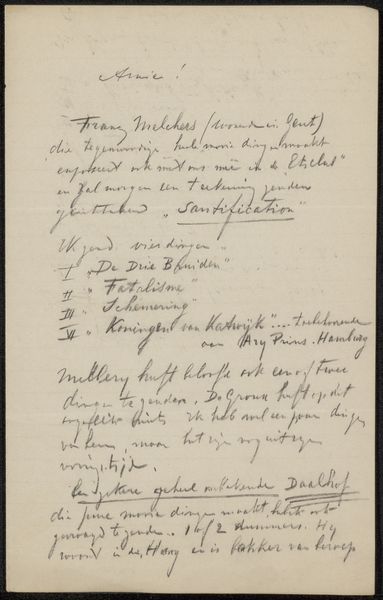 Amice!
Franz Melchers (woond in Gent)
die tegenwoordig hele mooie dingen maakt
exposeert ook met ons mee in de "Etsclub"
en zal morgen een teekening zenden
getiteld "Santification"
Ik zend vier dingen
I "De Drie Bruiden"
II "Fatalisme"
III "Schemering"
VI "Koningen van Katwijk" ... toebehoorende
aan Ary Prins. Hamburg
Mellery heeft beloofd ook een of twee
dingen te zenden. De Groux heeft op dit
oogenblik niets. Ik heb wel een paar dingen
van hem, maar het zijn nog uit zijn
vroeg. tijd.
Een zekere geheel onbekende Daalhof
die fine mooie dingen maakt, heb ik ook
gevraagd te zenden. 1 of 2 nummers. Hij
woont in den Haag en is bakker van beroep